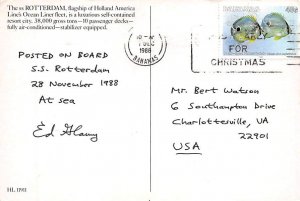 The ss ROTTERDAM, flagship of Holland America
Line's Ocean Liner fleet, is a luxurious self-contained
resort city, 38,000 gross tons—10 passenger decks—
fully air-conditioned—stabilizer equipped.
POSTED ON BOARD
S.S. Rotterdam
28 November 1988
At sea
Ed
HL 1191
1988
BAHAMAS
FOR
CHRISTMAS
BAHAMAS
Mr. Bert Watson
6 Southampton Drive
Charlottesville, VA
22901
USA